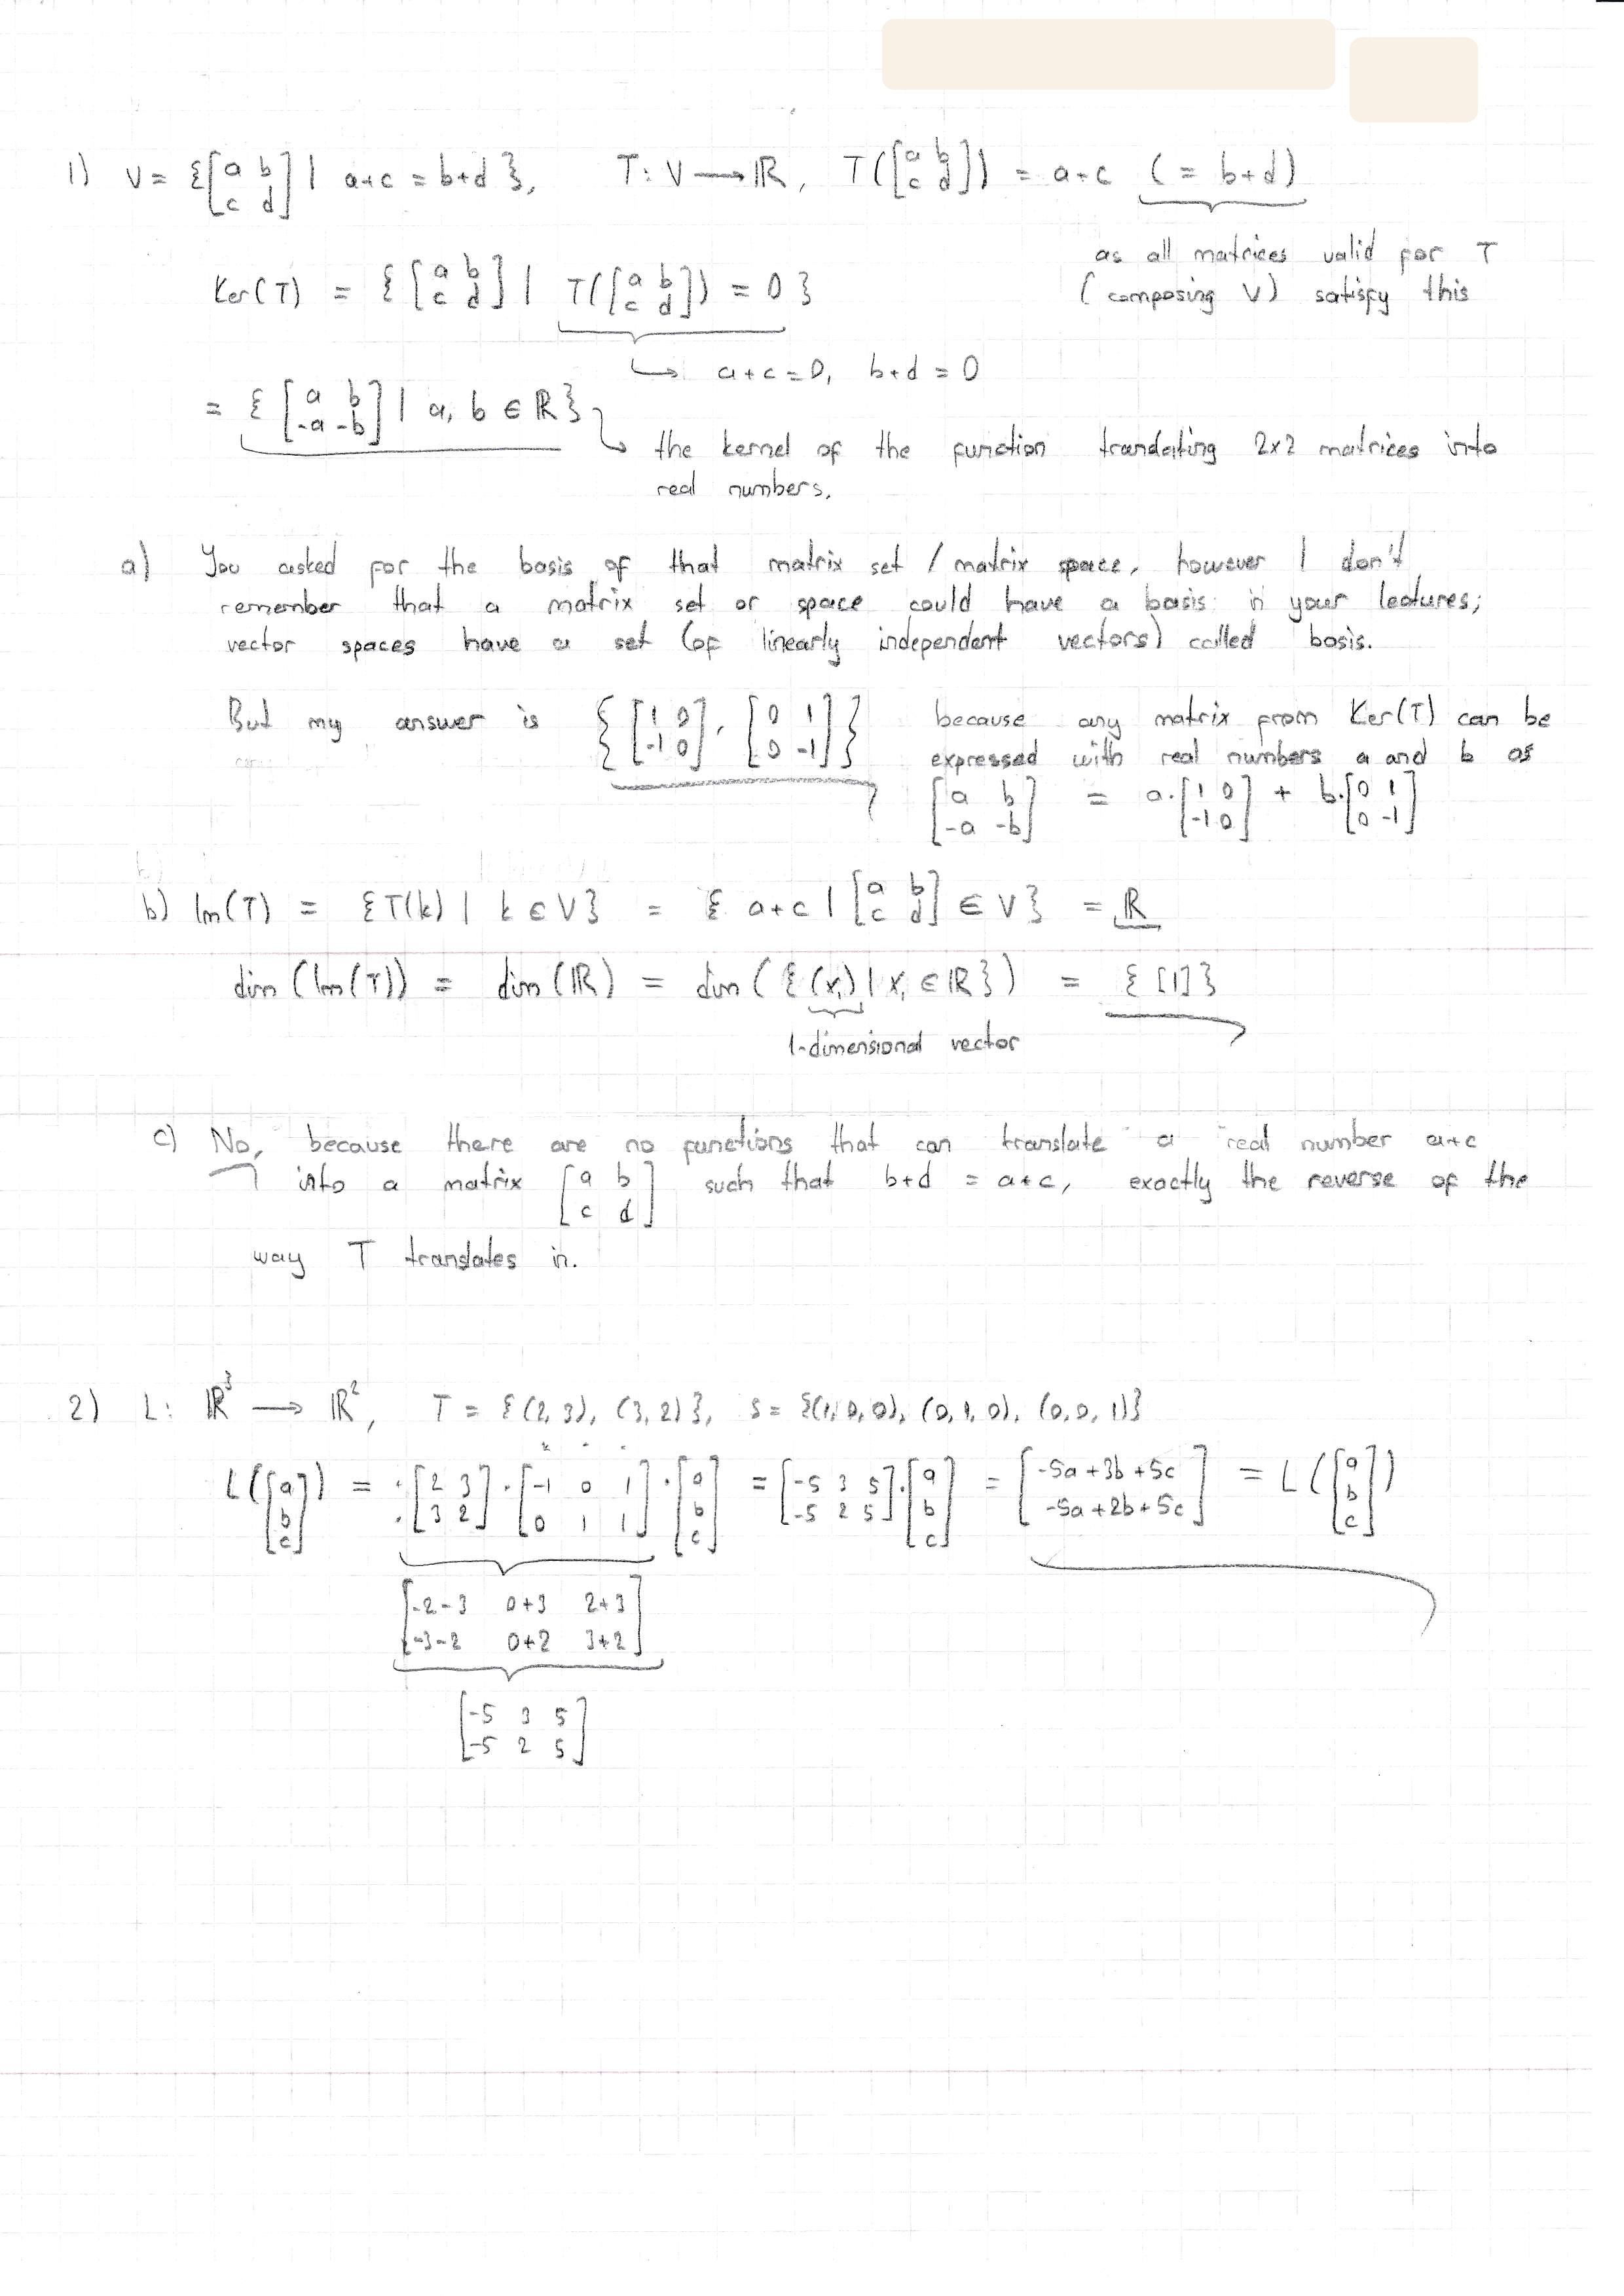 1) V = {[a b; c d] | a+c = b+d}, T: V → ℝ, T([a b; c d]) = a+c (= b+d)
as all matrices valid for T
(composing V) satisfy this
Ker(T) = {[a b; c d] | T([a b; c d]) = 0}
↳ a+c=0, b+d=0
= {[a b; -a -b] | a, b ∈ ℝ}
↳ the kernel of the function translating 2x2 matrices into
real numbers.
a) You asked for the basis of that matrix set / matrix space, however I don't
remember that a matrix set or space could have a basis in your lectures;
vector spaces have a set (of linearly independent vectors) called basis.
But my answer is {[1 0; -1 0], [0 1; 0 -1]} because any matrix from Ker(T) can be
expressed with real numbers a and b as
[a b; -a -b] = a·[1 0; -1 0] + b·[0 1; 0 -1]
b) Im(T) = {T(k) | k ∈ V} = {a+c | [a b; c d] ∈ V} = ℝ
dim(Im(T)) = dim(ℝ) = dim({(x₁) | x₁ ∈ ℝ}) = {[1]}
1-dimensional vector
c) No, because there are no functions that can translate a real number a+c
into a matrix [a b; c d] such that b+d = a+c, exactly the reverse of the
way T translates in.
2) L: ℝ³ → ℝ², T = {(2, 3), (3, 2)}, S = {(1, 0, 0), (0, 1, 0), (0, 0, 1)}
L([a; b; c]) = [2 3; 3 2]·[-1 0 1; 0 1 1]·[a; b; c] = [-5 3 5; -5 2 5]·[a; b; c] = [-5a+3b+5c; -5a+2b+5c] = L([a; b; c])
[-2-3 0+3 2+3; -3-2 0+2 3+2]
[-5 3 5; -5 2 5]